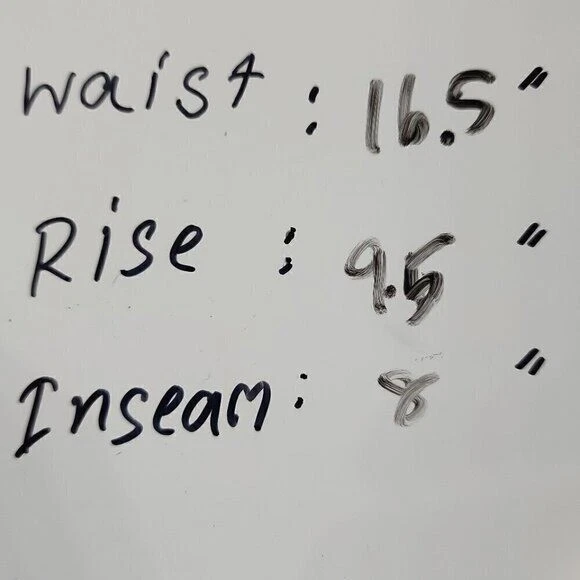 Waist : 16.5"
Rise : 9.5"
Inseam : 8"